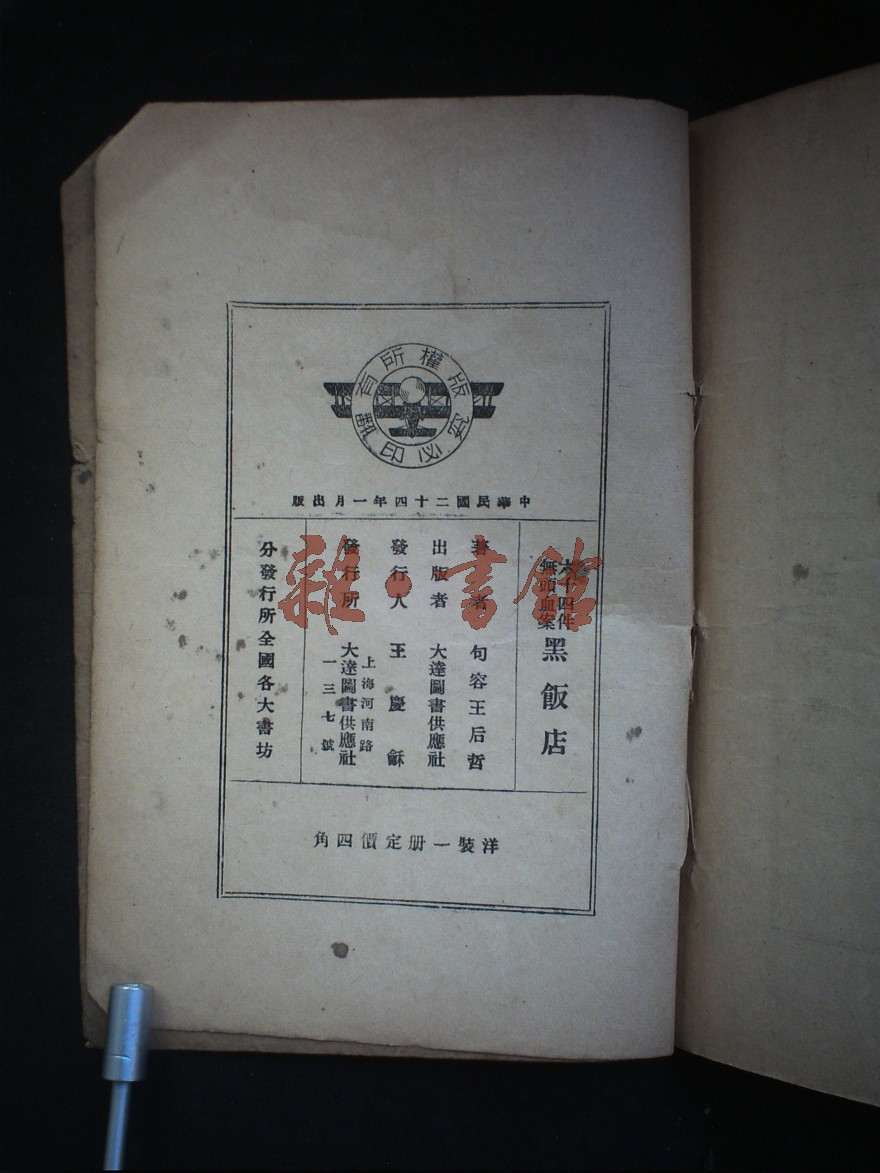 版權所有
翻印必究
中華民國二十四年一月出版
六十四件
無頭血案
黑飯店
著者 句容王后哲
出版者 大達圖書供應社
發行人 王慶龢
發行所 上海河南路
一三七號
大達圖書供應社
分發行所全國各大書坊
洋裝一册定價四角
雜·書館